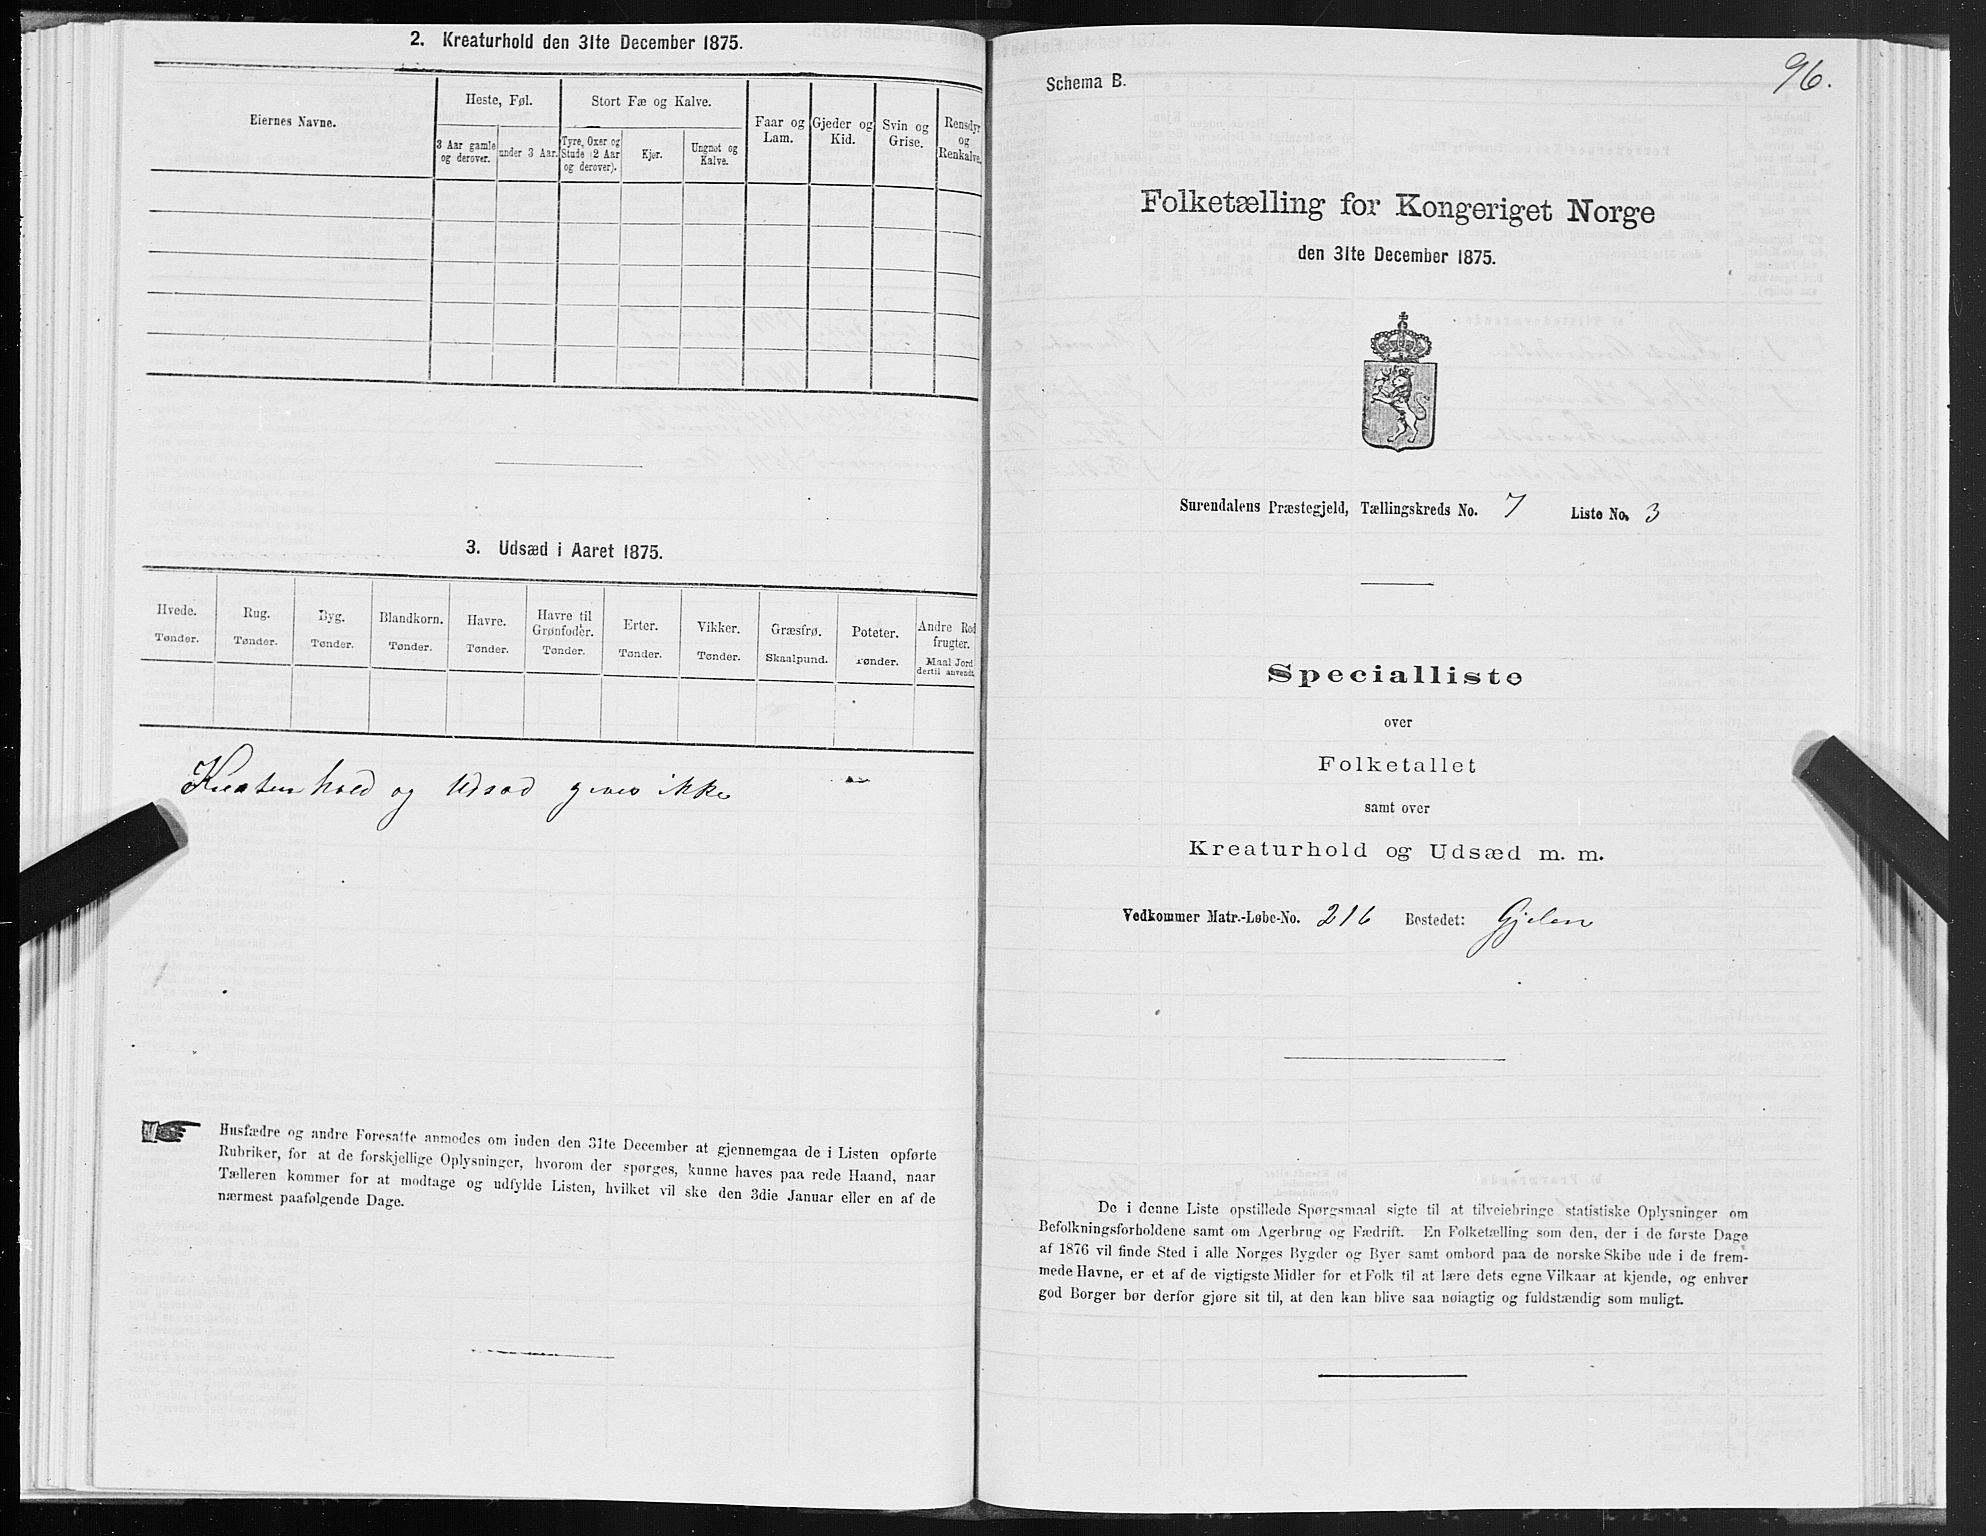 2. Kreaturhold den 31te December 1875.
Eiernes Navne.
Heste, Føl.
Stort Fæ og Kalve.
Faar og Lam.
Gjeder og Kid.
Svin og Grise.
Rensdyr og Renkalve.
3 Aar gamle og derover.
under 3 Aar.
Tyre, Oxer og Stude (2 Aar og derover).
Kjør.
Ungnøt og Kalve.
3. Udsæd i Aaret 1875.
Hvede. Rug. Byg. Blandkorn. Havre. Havre til Grønfoder. Erter. Vikker. Græsfrø. Poteter. Andre Rodfrugter.
Tønder. Tønder. Tønder. Tønder. Tønder. Tønder. Tønder. Tønder. Skaalpund. Tønder. Maal Jord dertil anvendt.
Kreaturhold og Udsæd gives ikke
Husfædre og andre Foresatte anmodes om inden den 31te December at gjennemgaa de i Listen opførte
Rubriker, for at de forskjellige Oplysninger, hvorom der spørges, kunne haves paa rede Haand, naar
Tælleren kommer for at modtage og udfylde Listen, hvilket vil ske den 3die Januar eller en af de
nærmest paafølgende Dage.
96.
Schema B.
Folketælling for Kongeriget Norge
den 31te December 1875.
Surendalens Præstegjeld, Tællingskreds No. 7 Liste No. 3
Specialliste
over
Folketallet
samt over
Kreaturhold og Udsæd m. m.
Vedkommer Matr.-Løbe-No. 216 Bostedet: Gjelen
De i denne Liste opstillede Spørgsmaal sigte til at tilveiebringe statistiske Oplysninger om
Befolkningsforholdene samt om Agerbrug og Fædrift. En Folketælling som den, der i de første Dage
af 1876 vil finde Sted i alle Norges Bygder og Byer samt ombord paa de norske Skibe ude i de frem-
mede Havne, er et af de vigtigste Midler for et Folk til at lære dets egne Vilkaar at kjende, og enhver
god Borger bør derfor gjøre sit til, at den kan blive saa nøiagtig og fuldstændig som muligt.